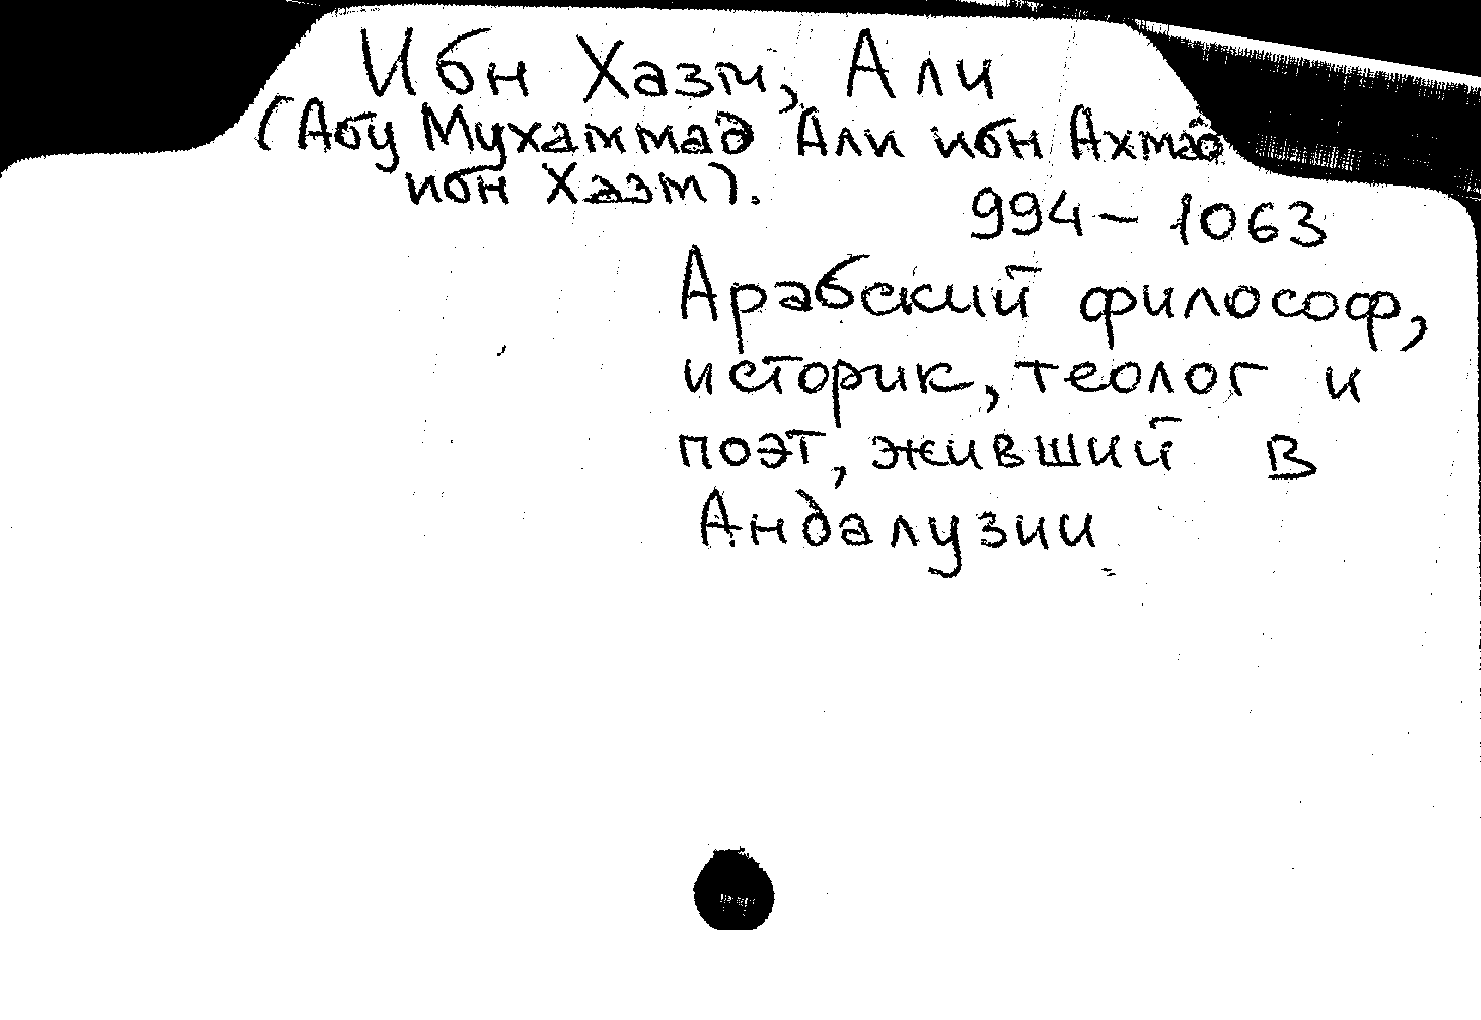 Ибн Хазм, Али
(Абу Мухаммад Али ибн Ахмад
ибн Хазм).
994 – 1063
Арабский философ,
историк, теолог и
поэт, живший в
Андалузии